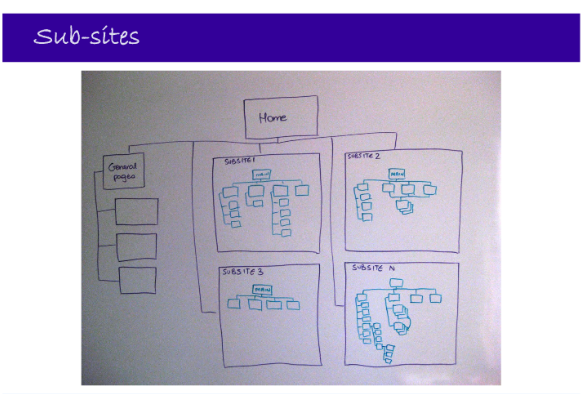 Sub-sites
Home
General
pages
SUBSITE 1
MAIN
SUBSITE 2
MAIN
SUBSITE 3
MAIN
SUBSITE N